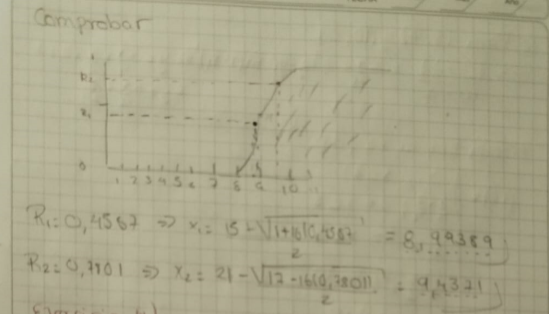 Comprobar
1
R₂
R₁
0
1 2 3 4 5 6 7 8 9 10
R₁=0,4587 ⇒ x₁= 15-√1+16(0,4587 / 2 = 8,99389
R₂=0,7801 ⇒ x₂= 21-√17-16(0,7801) / 2 = 9,4321